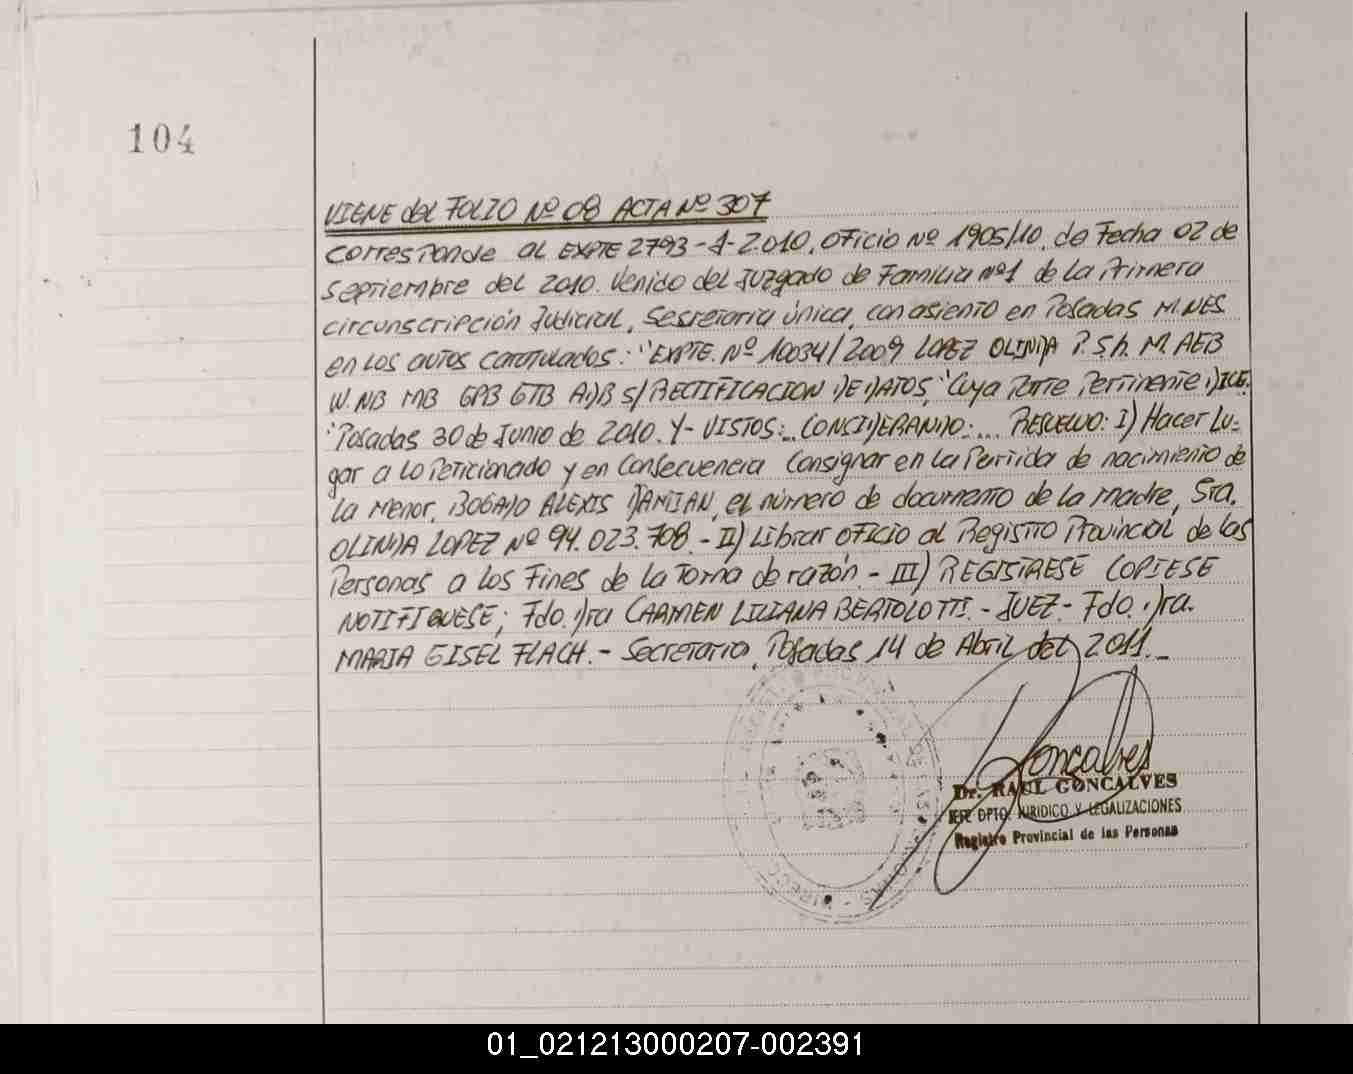 104
VIENE del FOLIO Nº 08 ACTA Nº 307
Corresponde al EXPTE 2793-A-2010, oficio Nº 1905/10, de Fecha 02 de
septiembre del 2010. Venido del Juzgado de Familia nº1 de la Primera
circunscripción Judicial, Secretaria única, con asiento en Posadas M.NES
en los autos caratulados: "EXPTE. Nº 10034/2009 LOPEZ OLINDA P.S.h. M. AEB
W.NB MB GPB GTB ADB S/RECTIFICACION DE DATOS," Cuya Parte Pertinente DICE.
"Posadas 30 de Junio de 2010. Y- VISTOS:.. CONCIDERANDO:... RESUELVO: I) Hacer Lu-
gar a lo Peticionado y en Consecuencia Consignar en la Partida de nacimiento de
la menor, BOGADO ALEXIS DAMIAN, el número de documento de la madre, Sra.
OLINDA LOPEZ Nº 94.023.708.- II) Librar oficio al Registro Provincial de las
Personas a los Fines de la Toma de razón.- III) REGISTRESE COPIESE
NOTIFIQUESE; Fdo. Dra CARMEN LILIANA BERTOLOTTI.- JUEZ- Fdo. Dra.
MARIA GISEL FLACH.- Secretaria, Posadas 14 de Abril del 2011._
Goncalves
Dr. RAUL GONCALVES
JEFE DPTO. JURIDICO Y LEGALIZACIONES
Registro Provincial de las Personas
01_021213000207-002391